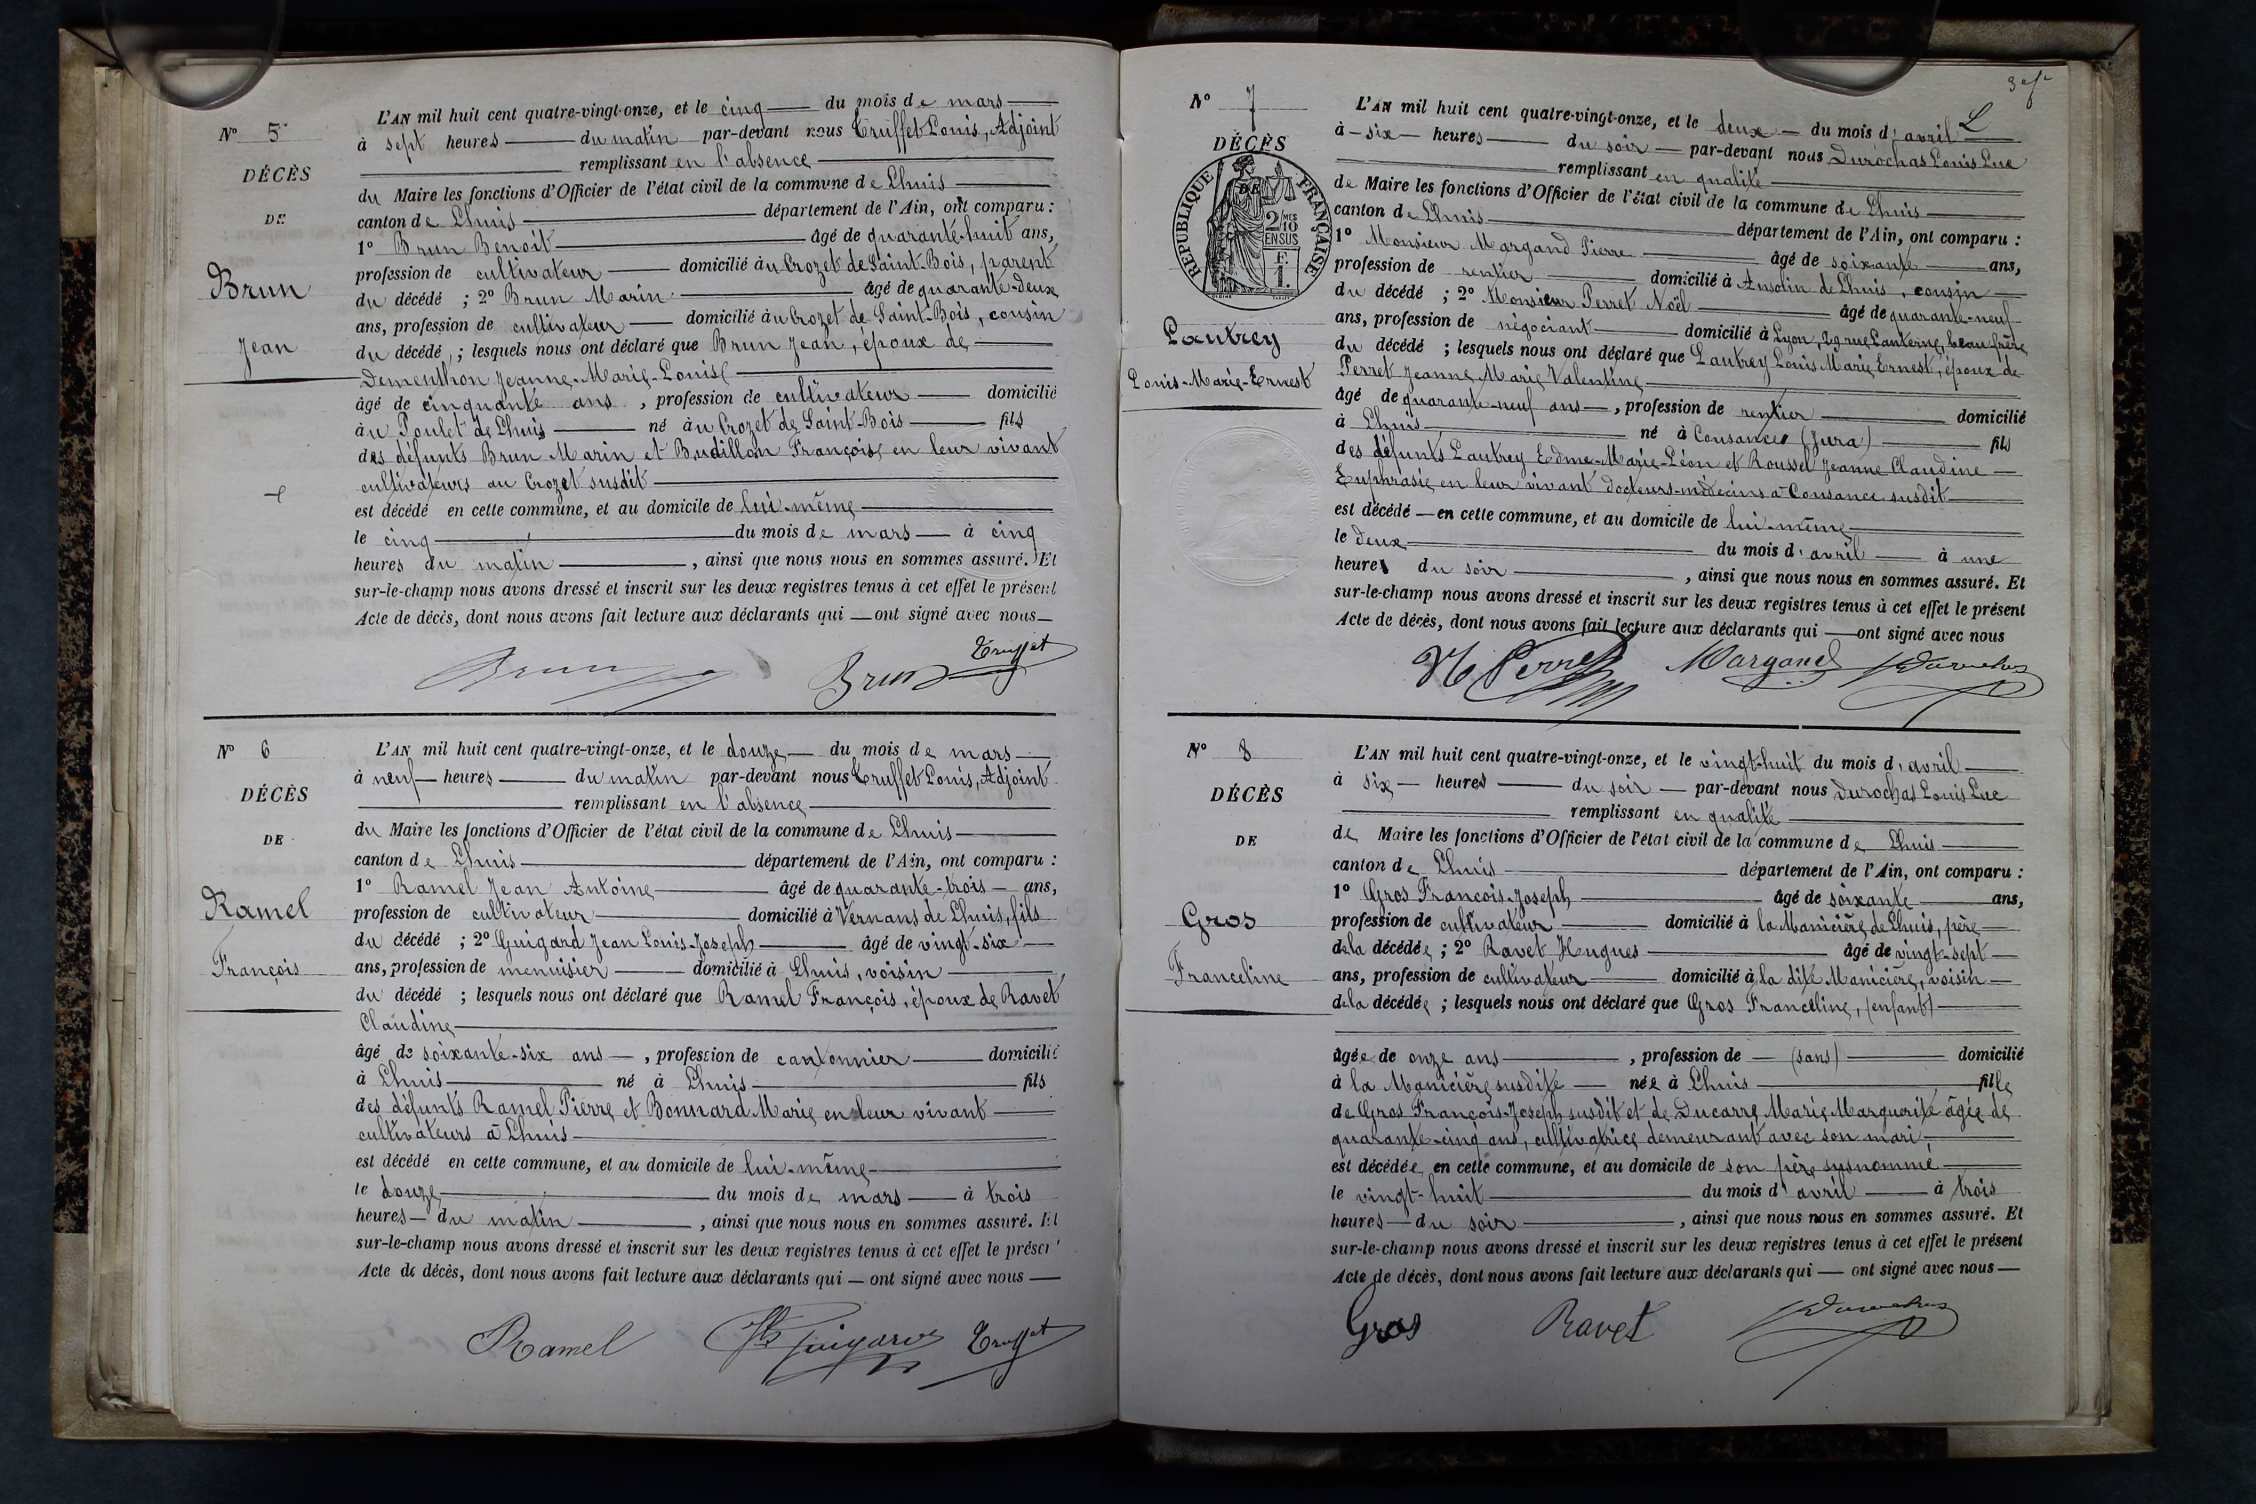 N° 5
DÉCÈS
DE
Brun
Jean
L'AN mil huit cent quatre-vingt-onze, et le cinq du mois de mars
à sept heures du matin par-devant nous Truffet Louis, Adjoint
remplissant en l'absence
du Maire les fonctions d'Officier de l'état civil de la commune de Lhuis
canton de Lhuis département de l'Ain, ont comparu :
1° Brun Benoît âgé de quarante-huit ans,
profession de cultivateur domicilié au Crozet de Saint-Bois, parent
du décédé ; 2° Brun Marin âgé de quarante-deux
ans, profession de cultivateur domicilié au Crozet de Saint-Bois, cousin
du décédé ; lesquels nous ont déclaré que Brun Jean, époux de
Dementhon Jeanne-Marie-Louise
âgé de cinquante ans, profession de cultivateur domicilié
au Poulet de Lhuis né au Crozet de Saint-Bois fils
des défunts Brun Marin et Budillon Françoise en leur vivant
cultivateurs au Crozet susdit
est décédé en cette commune, et au domicile de lui-même
le cinq du mois de mars à cinq
heures du matin, ainsi que nous nous en sommes assuré. Et
sur-le-champ nous avons dressé et inscrit sur les deux registres tenus à cet effet le présent
Acte de décès, dont nous avons fait lecture aux déclarants qui — ont signé avec nous—
Brun Brun Truffet
N° 6
DÉCÈS
DE
Ramel
François
L'AN mil huit cent quatre-vingt-onze, et le douze du mois de mars
à neuf heures du matin par-devant nous Truffet Louis, Adjoint
remplissant en l'absence
du Maire les fonctions d'Officier de l'état civil de la commune de Lhuis
canton de Lhuis département de l'Ain, ont comparu :
1° Ramel Jean Antoine âgé de quarante-trois ans,
profession de cultivateur domicilié à Vernans de Lhuis, fils
du décédé ; 2° Guigard Jean Louis-Joseph âgé de vingt-six
ans, profession de menuisier domicilié à Lhuis, voisin
du décédé ; lesquels nous ont déclaré que Ramel François, époux de Ravet
Claudine
âgé de soixante-six ans, profession de cantonnier domicilié
à Lhuis né à Lhuis fils
des défunts Ramel Pierre et Bonnard Marie en leur vivant
cultivateurs à Lhuis
est décédé en cette commune, et au domicile de lui-même
le douze du mois de mars à trois
heures du matin, ainsi que nous nous en sommes assuré. Et
sur-le-champ nous avons dressé et inscrit sur les deux registres tenus à cet effet le présent
Acte de décès, dont nous avons fait lecture aux déclarants qui — ont signé avec nous —
Ramel Guigard Truffet
N° 7
DÉCÈS
DE
RÉPUBLIQUE FRANÇAISE
2/10 MES
EN SUS
F.
1
Lautrey
Louis-Marie-Ernest
L'AN mil huit cent quatre-vingt-onze, et le deux du mois d'avril
à six heures du soir par-devant nous Durochas Louis Luc
remplissant en qualité
de Maire les fonctions d'Officier de l'état civil de la commune de Lhuis
canton de Lhuis département de l'Ain, ont comparu :
1° Monsieur Margand Pierre âgé de soixante ans,
profession de rentier domicilié à Ansolin de Lhuis, cousin
du décédé ; 2° Monsieur Perret Noël âgé de quarante-neuf
ans, profession de négociant domicilié à Lyon, 29 rue Lanterne, beau-frère
du décédé ; lesquels nous ont déclaré que Lautrey Louis Marie Ernest, époux de
Perret Jeanne Marie Valentine
âgé de quarante-neuf ans, profession de rentier domicilié
à Lhuis né à Cousance (Jura) fils
des défunts Lautrey Edme-Marie-Léon et Roussel Jeanne Claudine
Euphrasie en leur vivant docteurs-médecins à Cousance susdit
est décédé en cette commune, et au domicile de lui-même
le deux du mois d'avril à une
heure du soir, ainsi que nous nous en sommes assuré. Et
sur-le-champ nous avons dressé et inscrit sur les deux registres tenus à cet effet le présent
Acte de décès, dont nous avons fait lecture aux déclarants qui — ont signé avec nous
N Perret Margand Durochas
N° 8
DÉCÈS
DE
Gros
Franceline
L'AN mil huit cent quatre-vingt-onze, et le vingt-huit du mois d'avril
à six heures du soir par-devant nous Durochas Louis Luc
remplissant en qualité
de Maire les fonctions d'Officier de l'état civil de la commune de Lhuis
canton de Lhuis département de l'Ain, ont comparu :
1° Gros François-Joseph âgé de soixante ans,
profession de cultivateur domicilié à la Manicière de Lhuis, père
de la décédée ; 2° Ravet Hugues âgé de vingt-sept
ans, profession de cultivateur domicilié à la dite Manicière, voisin
de la décédée ; lesquels nous ont déclaré que Gros Franceline, (enfant)
âgée de onze ans, profession de (sans) domicilié
à la Manicière susdite née à Lhuis fille
de Gros François-Joseph susdit et de Ducarre Marie Marguerite âgée de
quarante-cinq ans, cultivatrice demeurant avec son mari,
est décédée en cette commune, et au domicile de son père susnommé
le vingt-huit du mois d'avril à trois
heures du soir, ainsi que nous nous en sommes assuré. Et
sur-le-champ nous avons dressé et inscrit sur les deux registres tenus à cet effet le présent
Acte de décès, dont nous avons fait lecture aux déclarants qui — ont signé avec nous —
Gros Ravet Durochas